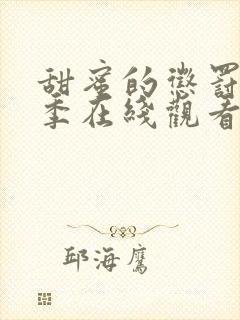 甜蜜的懲罰
季在綫觀看
邱海鷹